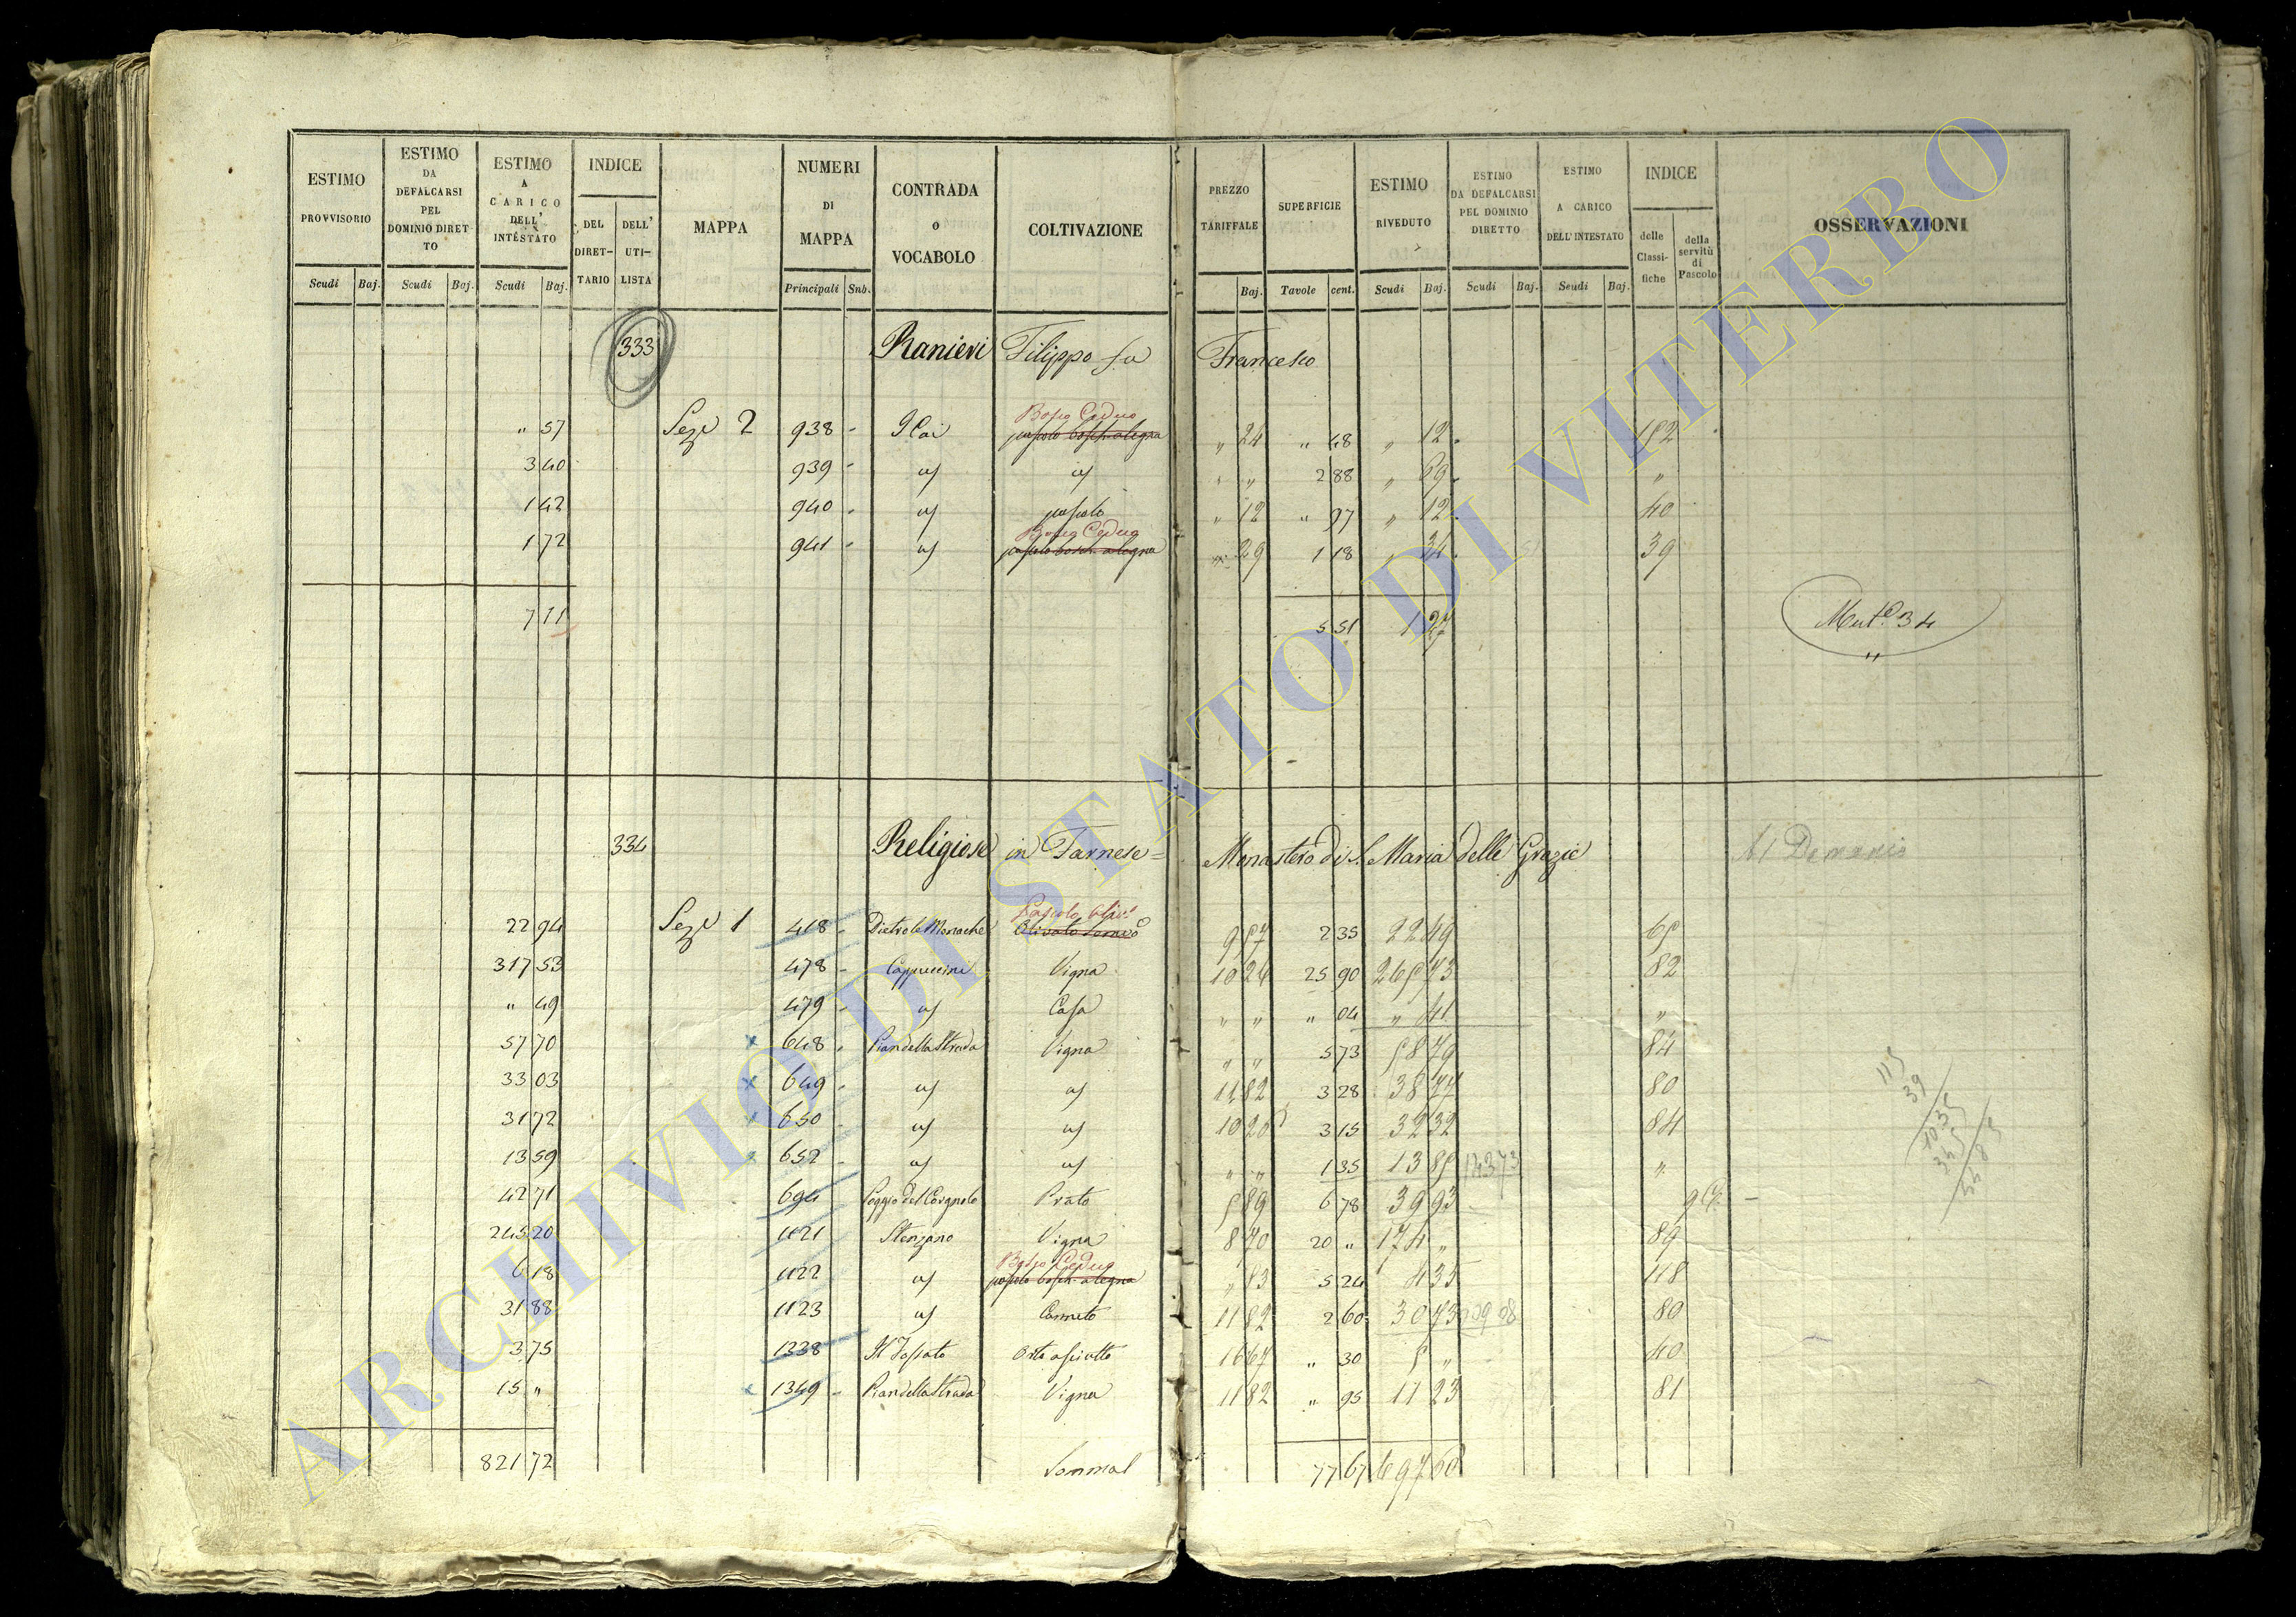 ESTIMO PROVVISORIO | ESTIMO DA DEFALCARSI PEL DOMINIO DIRET-TO | ESTIMO A CARICO DELL' INTESTATO | INDICE DEL DIRET-TARIO | DELL' UTI-LISTA | MAPPA | NUMERI DI MAPPA | CONTRADA o VOCABOLO | COLTIVAZIONE | PREZZO TARIFFALE | SUPERFICIE | ESTIMO RIVEDUTO | ESTIMO DA DEFALCARSI PEL DOMINIO DIRETTO | ESTIMO A CARICO DELL' INTESTATO | INDICE delle Classi-fiche | della servitù di Pascolo | OSSERVAZIONI
Scudi Baj. Scudi Baj. Scudi Baj. Principali Sub. Baj. Tavole cent. Scudi Baj. Scudi Baj. Scudi Baj.
333 Ranieri Filippo fu Francesco
Bosco Ceduo
" 57 Sez.e 2 938 - pascolo bosch. a legna " 24 " 48 " 12 152
3 40 939 - " " 2 88 " 69 "
1 42 940 - pascolo " 12 " 97 " 12 40
Bosco Ceduo
1 72 941 - pascolo bosch. a legna " 29 1 18 " 34 39
7 11 5 51 1 27 Mut.e 34
334 Religiose in Farnese = Monastero di S. Maria delle Grazie Al Demanio
Pascolo Oliv.o
22 94 Sez.e 1 418 - Dietro le Monache 9 57 2 35 22 49 65
317 53 478 - Cappuccini Vigna 10 24 25 90 265 73 82
" 49 479 - Casa " " " 04 " 41 "
57 70 x 648 - Pian della Strada Vigna " " 5 73 58 79 84
33 03 x 649 - 11 82 3 28 38 77 80
31 72 x 650 - 10 26 3 15 32 32 84
13 59 x 652 - " " 1 35 13 85 "
42 71 694 Poggio del Corgnolo Prato 5 89 6 78 39 93
245 20 1121 Stenzano Vigna 8 70 20 " 174 " 89
Bosco Ceduo
6 18 1122 pascolo bosch. a legna " 83 5 24 4 35 118
31 88 1123 Canneto 11 82 2 60 30 73 80
3 75 1338 Il Fossato Orto asciutto 16 67 " 30 5 " 40
15 " x 1349 - Pian della Strada Vigna 11 82 " 95 11 23 81
821 72 77 67 697 60
ARCHIVIO DI STATO DI VITERBO